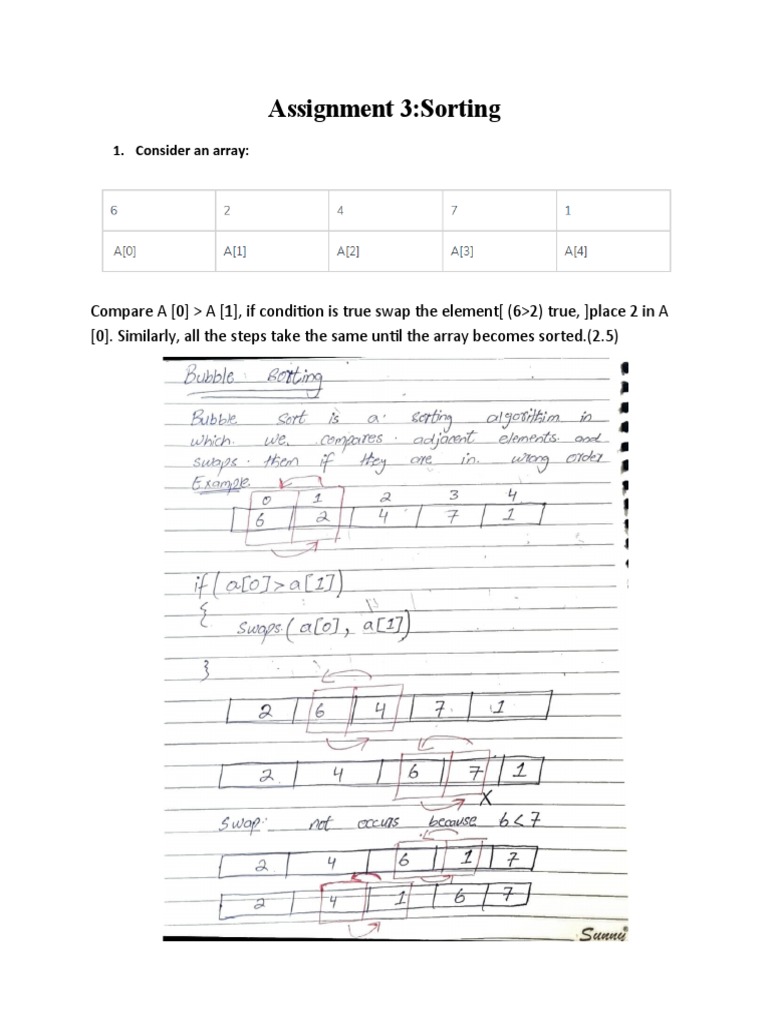 Assignment 3:Sorting
1. Consider an array:
6 2 4 7 1
A[0] A[1] A[2] A[3] A[4]
Compare A [0] > A [1], if condition is true swap the element[ (6>2) true, ]place 2 in A
[0]. Similarly, all the steps take the same until the array becomes sorted.(2.5)
Bubble Sorting
Bubble Sort is a sorting algorithim in
which we compares adjacent elements and
swaps them if they are in wrong order
Example
0 1 2 3 4
6 2 4 7 1
if(a[0]>a[1])
{
swaps(a[0], a[1])
}
2 6 4 7 1
2 4 6 7 1
X
Swap: not occurs because 6<7
2 4 6 1 7
2 4 1 6 7
Sunny